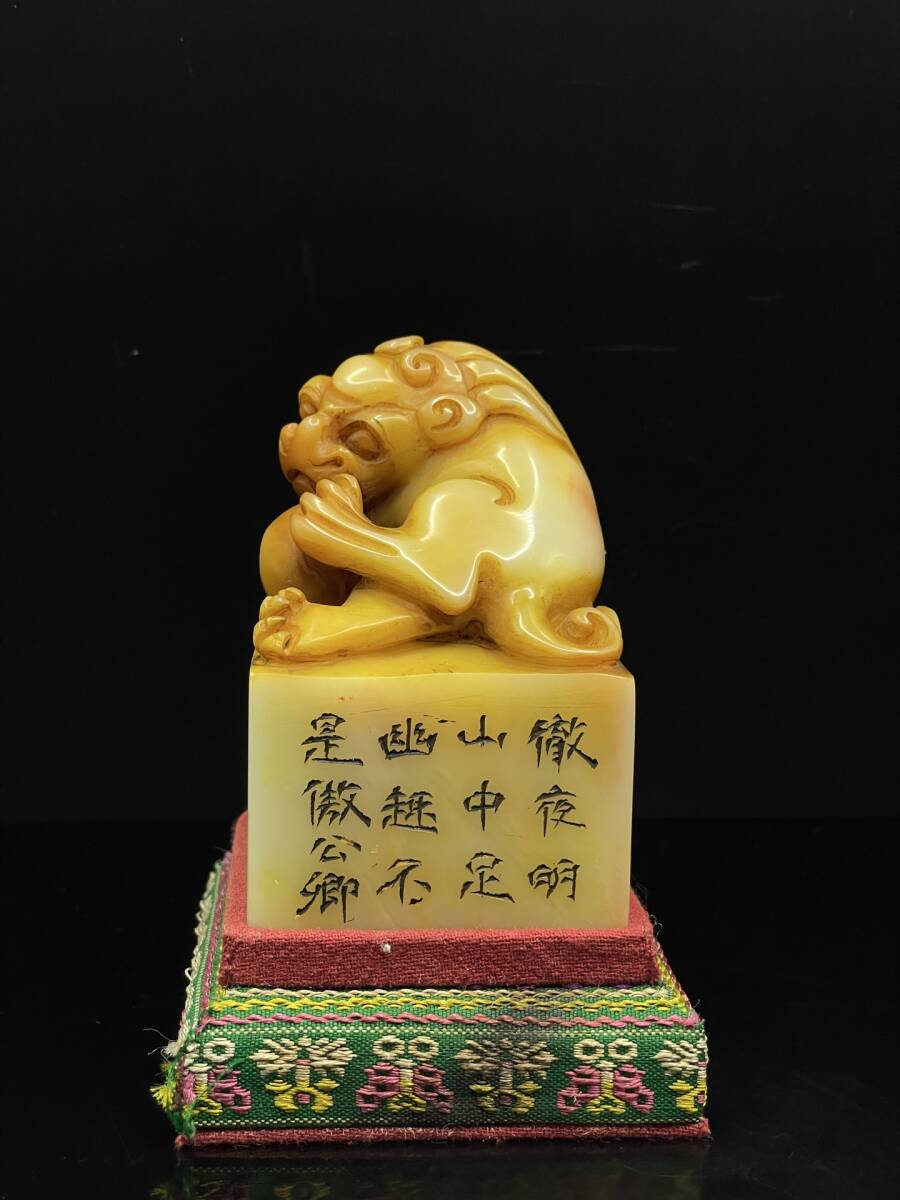 徹夜明
山中足
幽趣不
是傲公卿